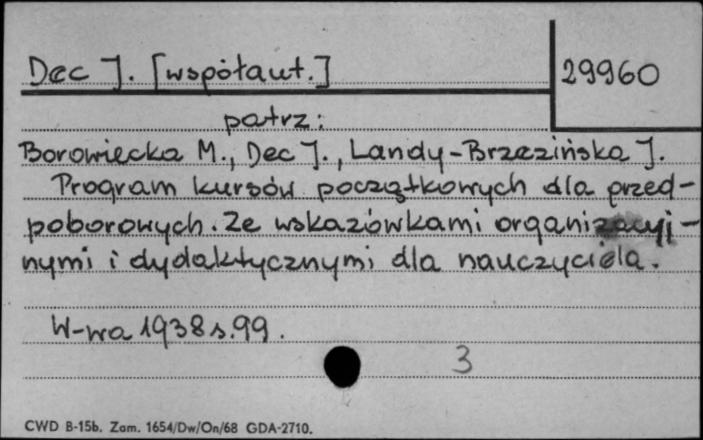 Dec J. [współaut.]
29960
patrz:
Borowiecka M., Dec J., Landy-Brzezińska J.
Program kursów początkowych dla przed-
poborowych. Ze wskazówkami organizacyj-
nymi i dydaktycznymi dla nauczyciela.
W-wa 1938 s. 99.
3
CWD B-15b. Zam. 1654/Dw/On/68 GDA-2710.